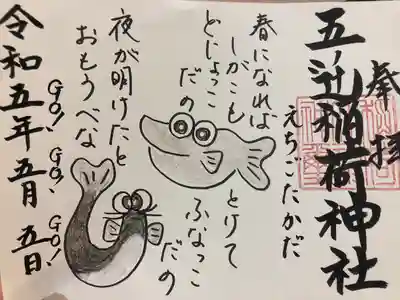 奉拝
五辻稲荷神社
えちごたかだ
春になれば
しがこも とけて
どじょっこ ふなっこ
だの だの
夜が明けたと
おもうべな
GO! GO! GO!
令和五年五月五日